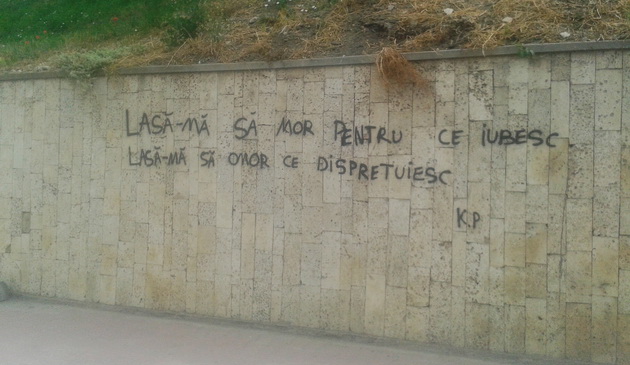 LASĂ-MĂ SĂ MOR PENTRU CE IUBESC.
LASĂ-MĂ SĂ OMOR CE DISPREȚUIESC
K.P